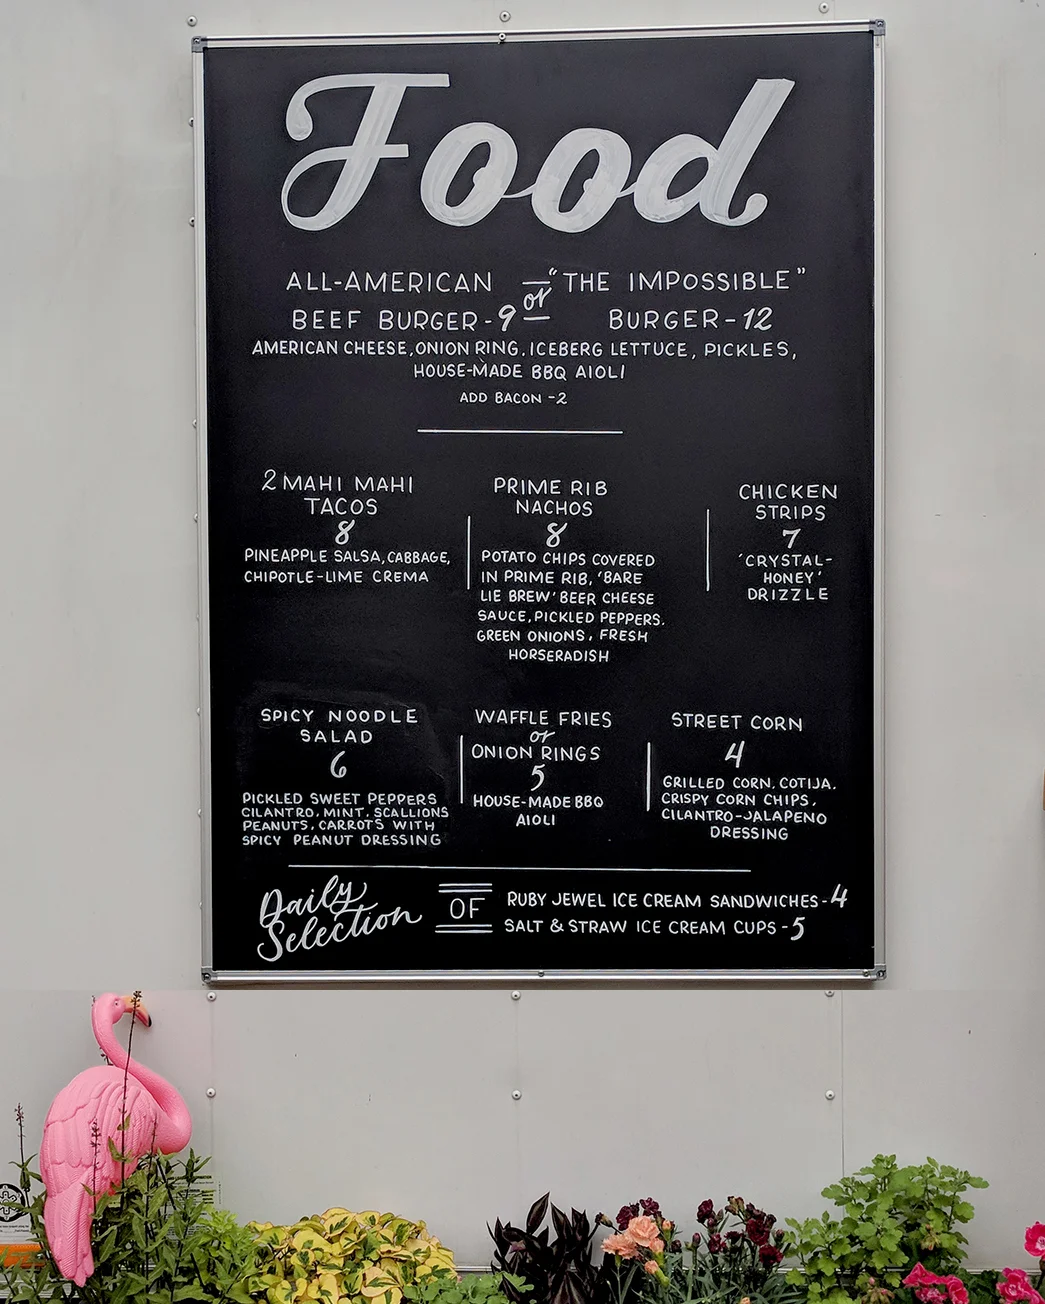 Food
ALL-AMERICAN or "THE IMPOSSIBLE"
BEEF BURGER - 9 BURGER - 12
AMERICAN CHEESE, ONION RING, ICEBERG LETTUCE, PICKLES,
HOUSE-MADE BBQ AIOLI
ADD BACON - 2
2 MAHI MAHI
TACOS
8
PINEAPPLE SALSA, CABBAGE,
CHIPOTLE-LIME CREMA
PRIME RIB
NACHOS
8
POTATO CHIPS COVERED
IN PRIME RIB, 'BARE
LIE BREW' BEER CHEESE
SAUCE, PICKLED PEPPERS.
GREEN ONIONS, FRESH
HORSERADISH
CHICKEN
STRIPS
7
'CRYSTAL-
HONEY'
DRIZZLE
SPICY NOODLE
SALAD
6
PICKLED SWEET PEPPERS
CILANTRO, MINT, SCALLIONS
PEANUTS, CARROTS WITH
SPICY PEANUT DRESSING
WAFFLE FRIES
or
ONION RINGS
5
HOUSE-MADE BBQ
AIOLI
STREET CORN
4
GRILLED CORN, COTIJA,
CRISPY CORN CHIPS,
CILANTRO-JALAPENO
DRESSING
Daily
Selection
OF
RUBY JEWEL ICE CREAM SANDWICHES - 4
SALT & STRAW ICE CREAM CUPS - 5